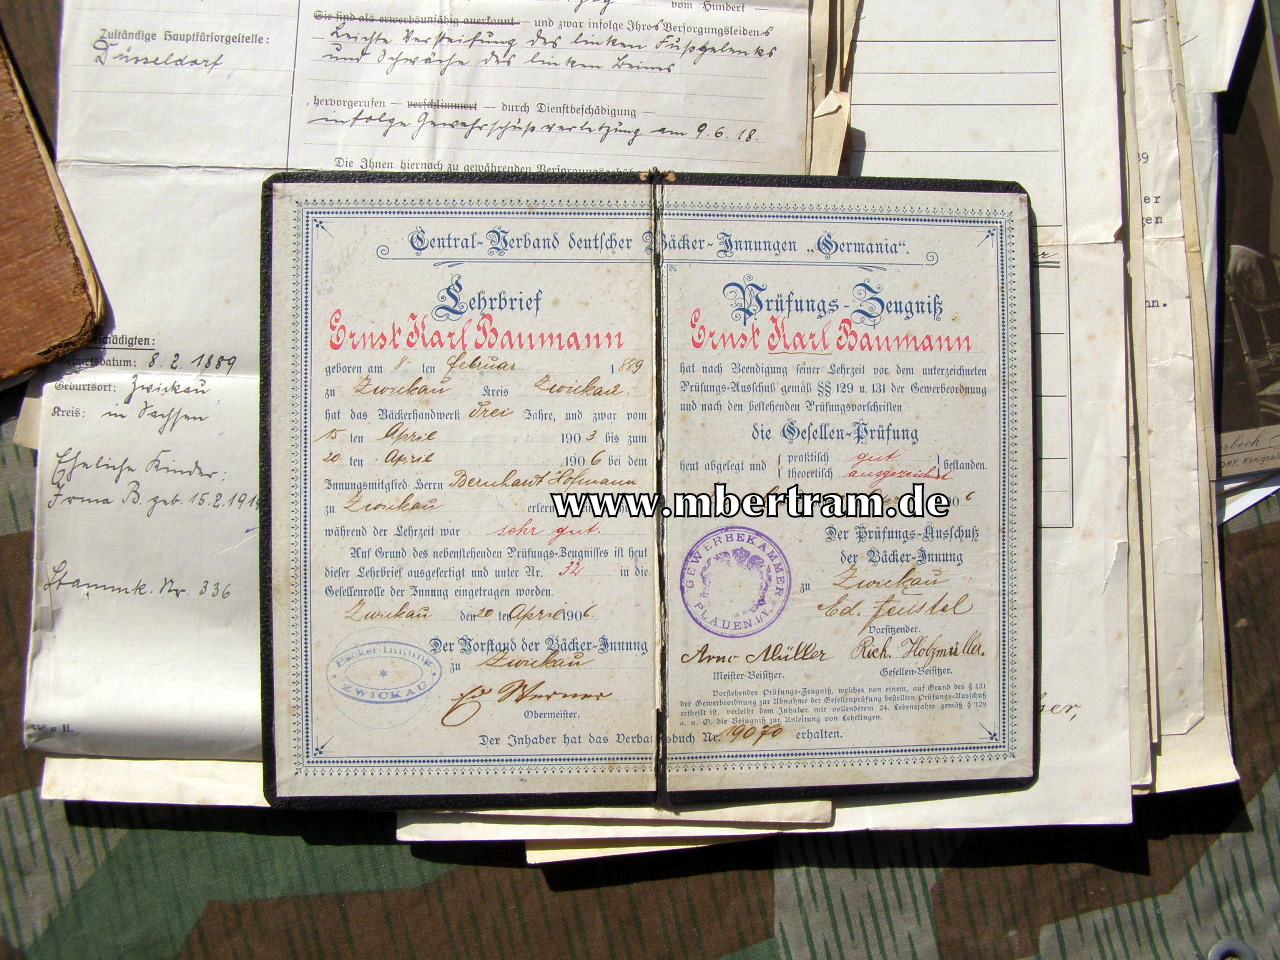 vom Hundert —
Sie sind als erwerbsunfähig anerkannt — und zwar infolge Ihres Versorgungsleidens
Leichte Versteifung des linken Fußgelenks
und Schwäche des linken Beines
Zuständige Hauptfürsorgestelle:
Düsseldorf
hervorgerufen — verschlimmert — durch Dienstbeschädigung —
infolge Gewehrschußverletzung am 9.6.18.
Die Ihnen hiernach zu gewährenden
Central-Verband deutscher Bäcker-Innungen „Germania“.
Lehrbrief
Ernst Karl Baumann
geboren am 8. ten Februar 1889
zu Zwickau Kreis Zwickau
hat das Bäckerhandwerk drei Jahre, und zwar vom
15 ten April 1903 bis zum
20 ten April 1906 bei dem
Innungsmitglied Herrn Bernhardt Hofmann
zu Zwickau
während der Lehrzeit war sehr gut.
Auf Grund des nebenstehenden Prüfungs-Zeugnisses ist heut
dieser Lehrbrief ausgefertigt und unter Nr. 32 in die
Gesellenrolle der Innung eingetragen worden.
Zwickau den 20 ten April 1906.
Der Vorstand der Bäcker-Innung
zu Zwickau
Bäcker-Innung
ZWICKAU
E Werner
Obermeister.
Prüfungs-Zeugniß
Ernst Karl Baumann
hat nach Beendigung seiner Lehrzeit vor dem unterzeichneten
Prüfungs-Ausschuß gemäß §§ 129 u. 131 der Gewerbeordnung
und nach den bestehenden Prüfungsvorschriften
die Gesellen-Prüfung
heut abgelegt und praktisch gut
theoretisch ausgezeichnet bestanden.
www.mbertram.de
6
Der Prüfungs-Ausschuß
der Bäcker-Innung
zu Zwickau
GEWERBEKAMMER
PLAUEN I/V.
Ed. Feustel
Vorsitzender.
Arno Müller Rich. Holzmüller.
Meister-Beisitzer. Gesellen-Beisitzer.
Vorstehendes Prüfungs-Zeugniß, welches von einem, auf Grund des § 131
der Gewerbeordnung zur Abnahme der Gesellenprüfung bestellten Prüfungs-Ausschuß
ertheilt ist, verleiht dem Inhaber mit vollendetem 24. Lebensjahre gemäß § 129
a. a. O. die Befugniß zur Anleitung von Lehrlingen.
Der Inhaber hat das Verbandsbuch Nr. 19070 erhalten.
Geburtsdatum: 8.2.1889
Geburtsort: Zwickau
Kreis: in Sachsen
Eheliche Kinder:
Irma B. geb. 15.2.191
Stammk. Nr. 336